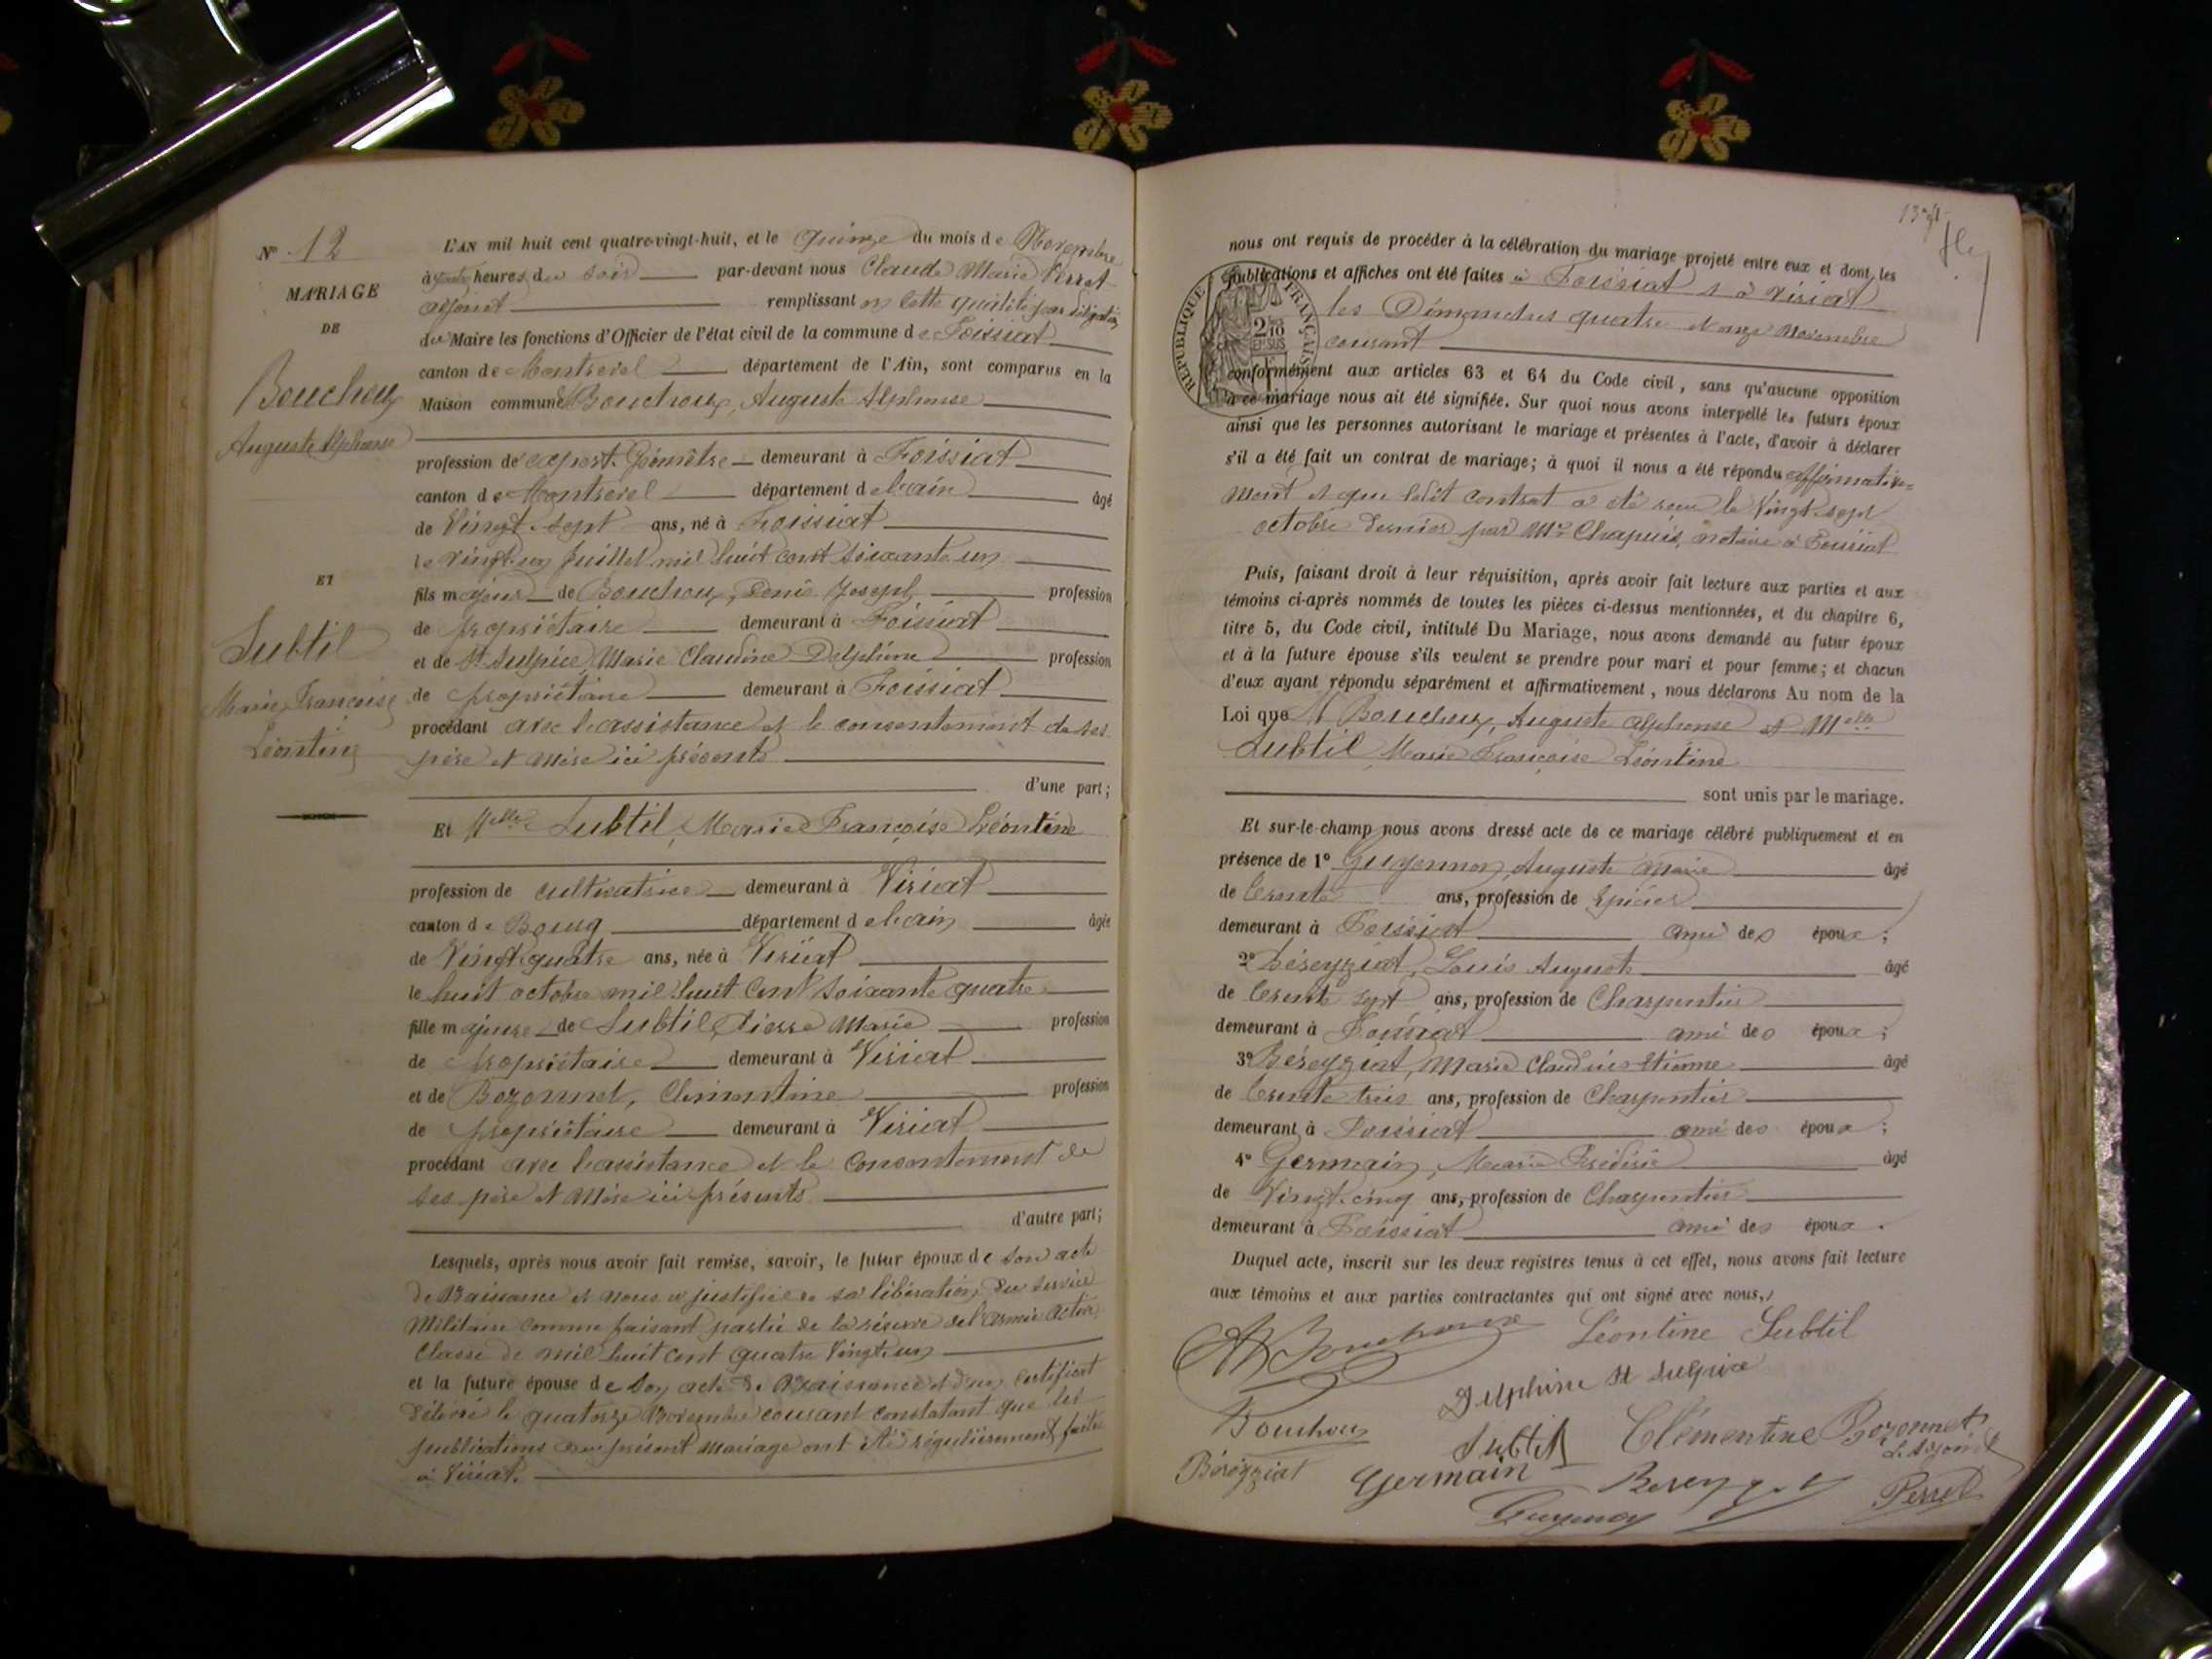 N° 12
MARIAGE
DE
Bouchoux
Auguste Alphonse
ET
Subtil
Marie Françoise
Léontine
L'AN mil huit cent quatre-vingt-huit, et le quinze du mois de Novembre
à heures du soir par-devant nous Claude Marie Perret
adjoint remplissant en cette qualité par délégation
du Maire les fonctions d'Officier de l'état civil de la commune de Foissiat
canton de Montrevel département de l'Ain, sont comparus en la
Maison commune Bouchoux, Auguste Alphonse
profession de expert-Géomètre demeurant à Foissiat
canton de Montrevel département de l'ain âgé
de Vingt-sept ans, né à Foissiat
le vingt-un Juillet mil huit cent soixante un
fils majeur de Bouchoux, Denis Joseph profession
de propriétaire demeurant à Foissiat
et de St Sulpice Marie Claudine Delphine profession
de propriétaire demeurant à Foissiat
procédant avec l'assistance et le consentement de ses
père et mère ici présents
d'une part;
Et Melle Subtil, Marie Françoise Léontine
profession de cultivatrice demeurant à Viriat
canton de Bourg département de l'ain âgée
de Vingt quatre ans, née à Viriat
le huit octobre mil huit cent soixante quatre
fille majeure de Subtil, Pierre Marie profession
de propriétaire demeurant à Viriat
et de Bozonnet, Clémentine profession
de propriétaire demeurant à Viriat
procédant avec l'assistance et le consentement de
ses père et mère ici présents
d'autre part;
Lesquels, après nous avoir fait remise, savoir, le futur époux de son acte
de Naissance et nous a justifié de sa libération du service
Militaire comme faisant partie de la réserve de l'armée active
Classe de mil huit cent quatre vingt-un
et la future épouse de son acte de Naissance et d'un certificat
délivré le quatorze Novembre courant constatant que les
publications du présent mariage ont été régulièrement faites
à Viriat.
nous ont requis de procéder à la célébration du mariage projeté entre eux et dont les
publications et affiches ont été faites à Foissiat et à Viriat
les Dimanches quatre et onze Novembre
courant
RÉPUBLIQUE FRANÇAISE
2/10 EN SUS
conformément aux articles 63 et 64 du Code civil, sans qu'aucune opposition
à ce mariage nous ait été signifiée. Sur quoi nous avons interpellé les futurs époux
ainsi que les personnes autorisant le mariage et présentes à l'acte, d'avoir à déclarer
s'il a été fait un contrat de mariage; à quoi il nous a été répondu affirmative=
ment et que ledit contrat a été reçu le Vingt-sept
octobre dernier par Me Chapuis, notaire à Foissiat
Puis, faisant droit à leur réquisition, après avoir fait lecture aux parties et aux
témoins ci-après nommés de toutes les pièces ci-dessus mentionnées, et du chapitre 6,
titre 5, du Code civil, intitulé Du Mariage, nous avons demandé au futur époux
et à la future épouse s'ils veulent se prendre pour mari et pour femme; et chacun
d'eux ayant répondu séparément et affirmativement, nous déclarons Au nom de la
Loi que M Bouchoux, Auguste Alphonse et Melle
Subtil Marie Françoise Léontine
sont unis par le mariage.
Et sur-le-champ nous avons dressé acte de ce mariage célébré publiquement et en
présence de 1° Guyennon, Auguste Marie âgé
de trente ans, profession de Epicier
demeurant à Foissiat ami des époux;
2° Béreyziat, Louis Auguste âgé
de trente sept ans, profession de Charpentier
demeurant à Foissiat ami des époux;
3° Béreyziat, Marie Claudius Etienne âgé
de trente trois ans, profession de Charpentier
demeurant à Foissiat ami des époux;
4° Germain, Marie Frédéric âgé
de Vingt-cinq ans, profession de Charpentier
demeurant à Foissiat ami des époux.
Duquel acte, inscrit sur les deux registres tenus à cet effet, nous avons fait lecture
aux témoins et aux parties contractantes qui ont signé avec nous,
A Bouchoux Léontine Subtil
Delphine St Sulpice
Bouchoux Subtil Clémentine Bozonnet
L'adjoint
Béreyziat Germain Bereyziat Perret
Guyennon